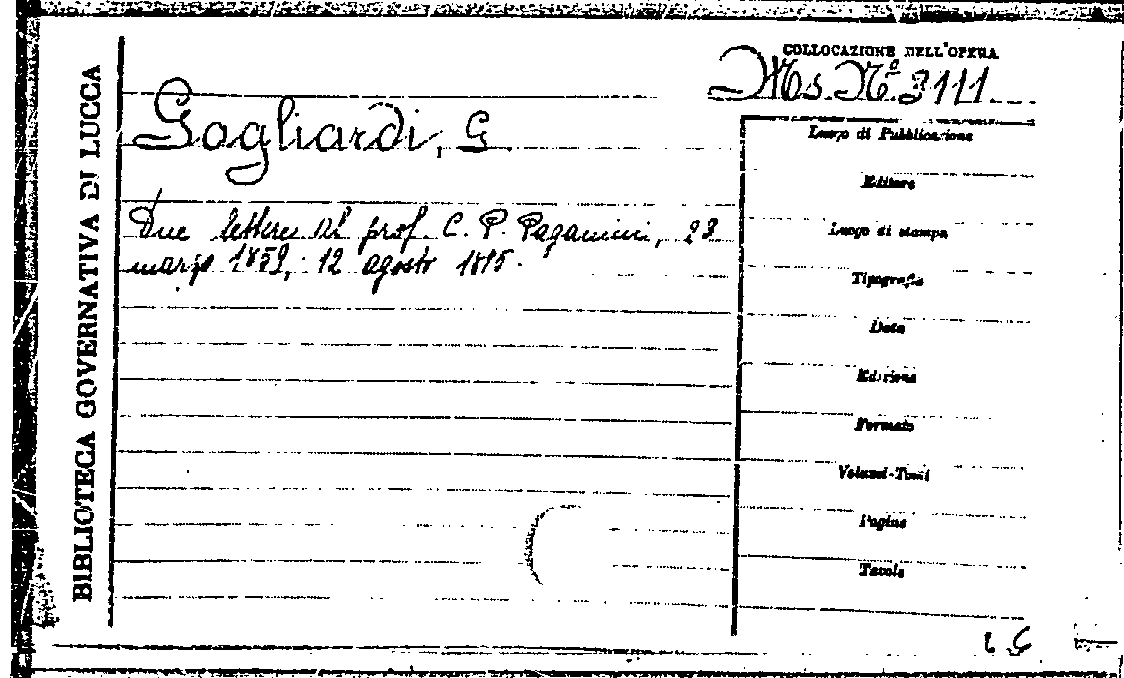 BIBLIOTECA GOVERNATIVA DI LUCCA
COLLOCAZIONE DELL'OPERA
Ms. Nº. 3111
Gogliardi, G.
Due lettere al prof. C. P. Paganini, 28
marzo 1859; 12 agosto 1875.
Luogo di Pubblicazione
Editore
Luogo di stampa
Tipografia
Data
Edizione
Formato
Volumi-Tomi
Pagine
Tavole